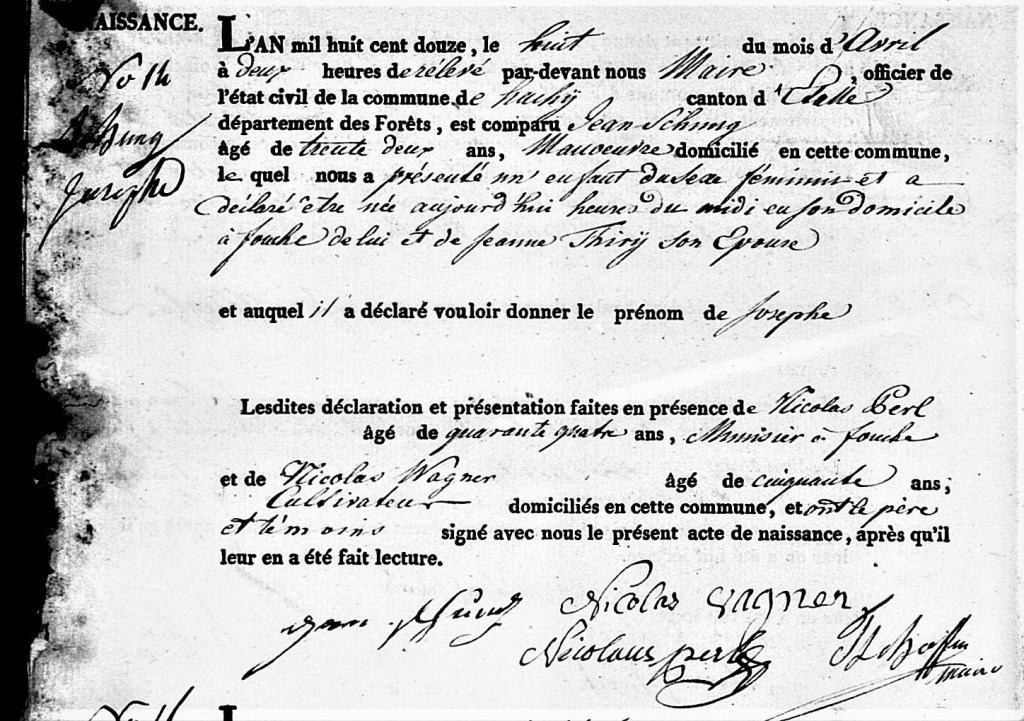 NAISSANCE.
No 14
Schung
Josephe
L'AN mil huit cent douze, le huit du mois d'Avril
à deux heures de rélévé par-devant nous Maire, officier de
l'état civil de la commune de hachÿ canton d'Etalle
département des Forêts, est comparu Jean Schung
âgé de trente deux ans, Manoeuvre domicilié en cette commune,
le quel nous a présenté un enfant du sexe féminin et a
déclaré être née aujourd'hui heures du midi en son domicile
à fouche de lui et de Jeanne Thirÿ son Epouse
et auquel il a déclaré vouloir donner le prénom de Josephe
Lesdites déclaration et présentation faites en présence de Nicolas Perl
âgé de quarante quatre ans, Menuisier à fouche
et de Nicolas Wagner âgé de cinquante ans;
Cultivateur domiciliés en cette commune, et ont le père
et témoins signé avec nous le présent acte de naissance, après qu'il
leur en a été fait lecture.
Nicolas wagner
Jean Schung
Nicolaus perl
maire
No